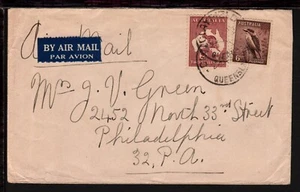 Air Mail
BY AIR MAIL
PAR AVION
AUSTRALIA
AUSTRALIA
QUEENSL
Mrs J. V. Green
2452 North 33rd Street
Philadelphia
32, P.A.